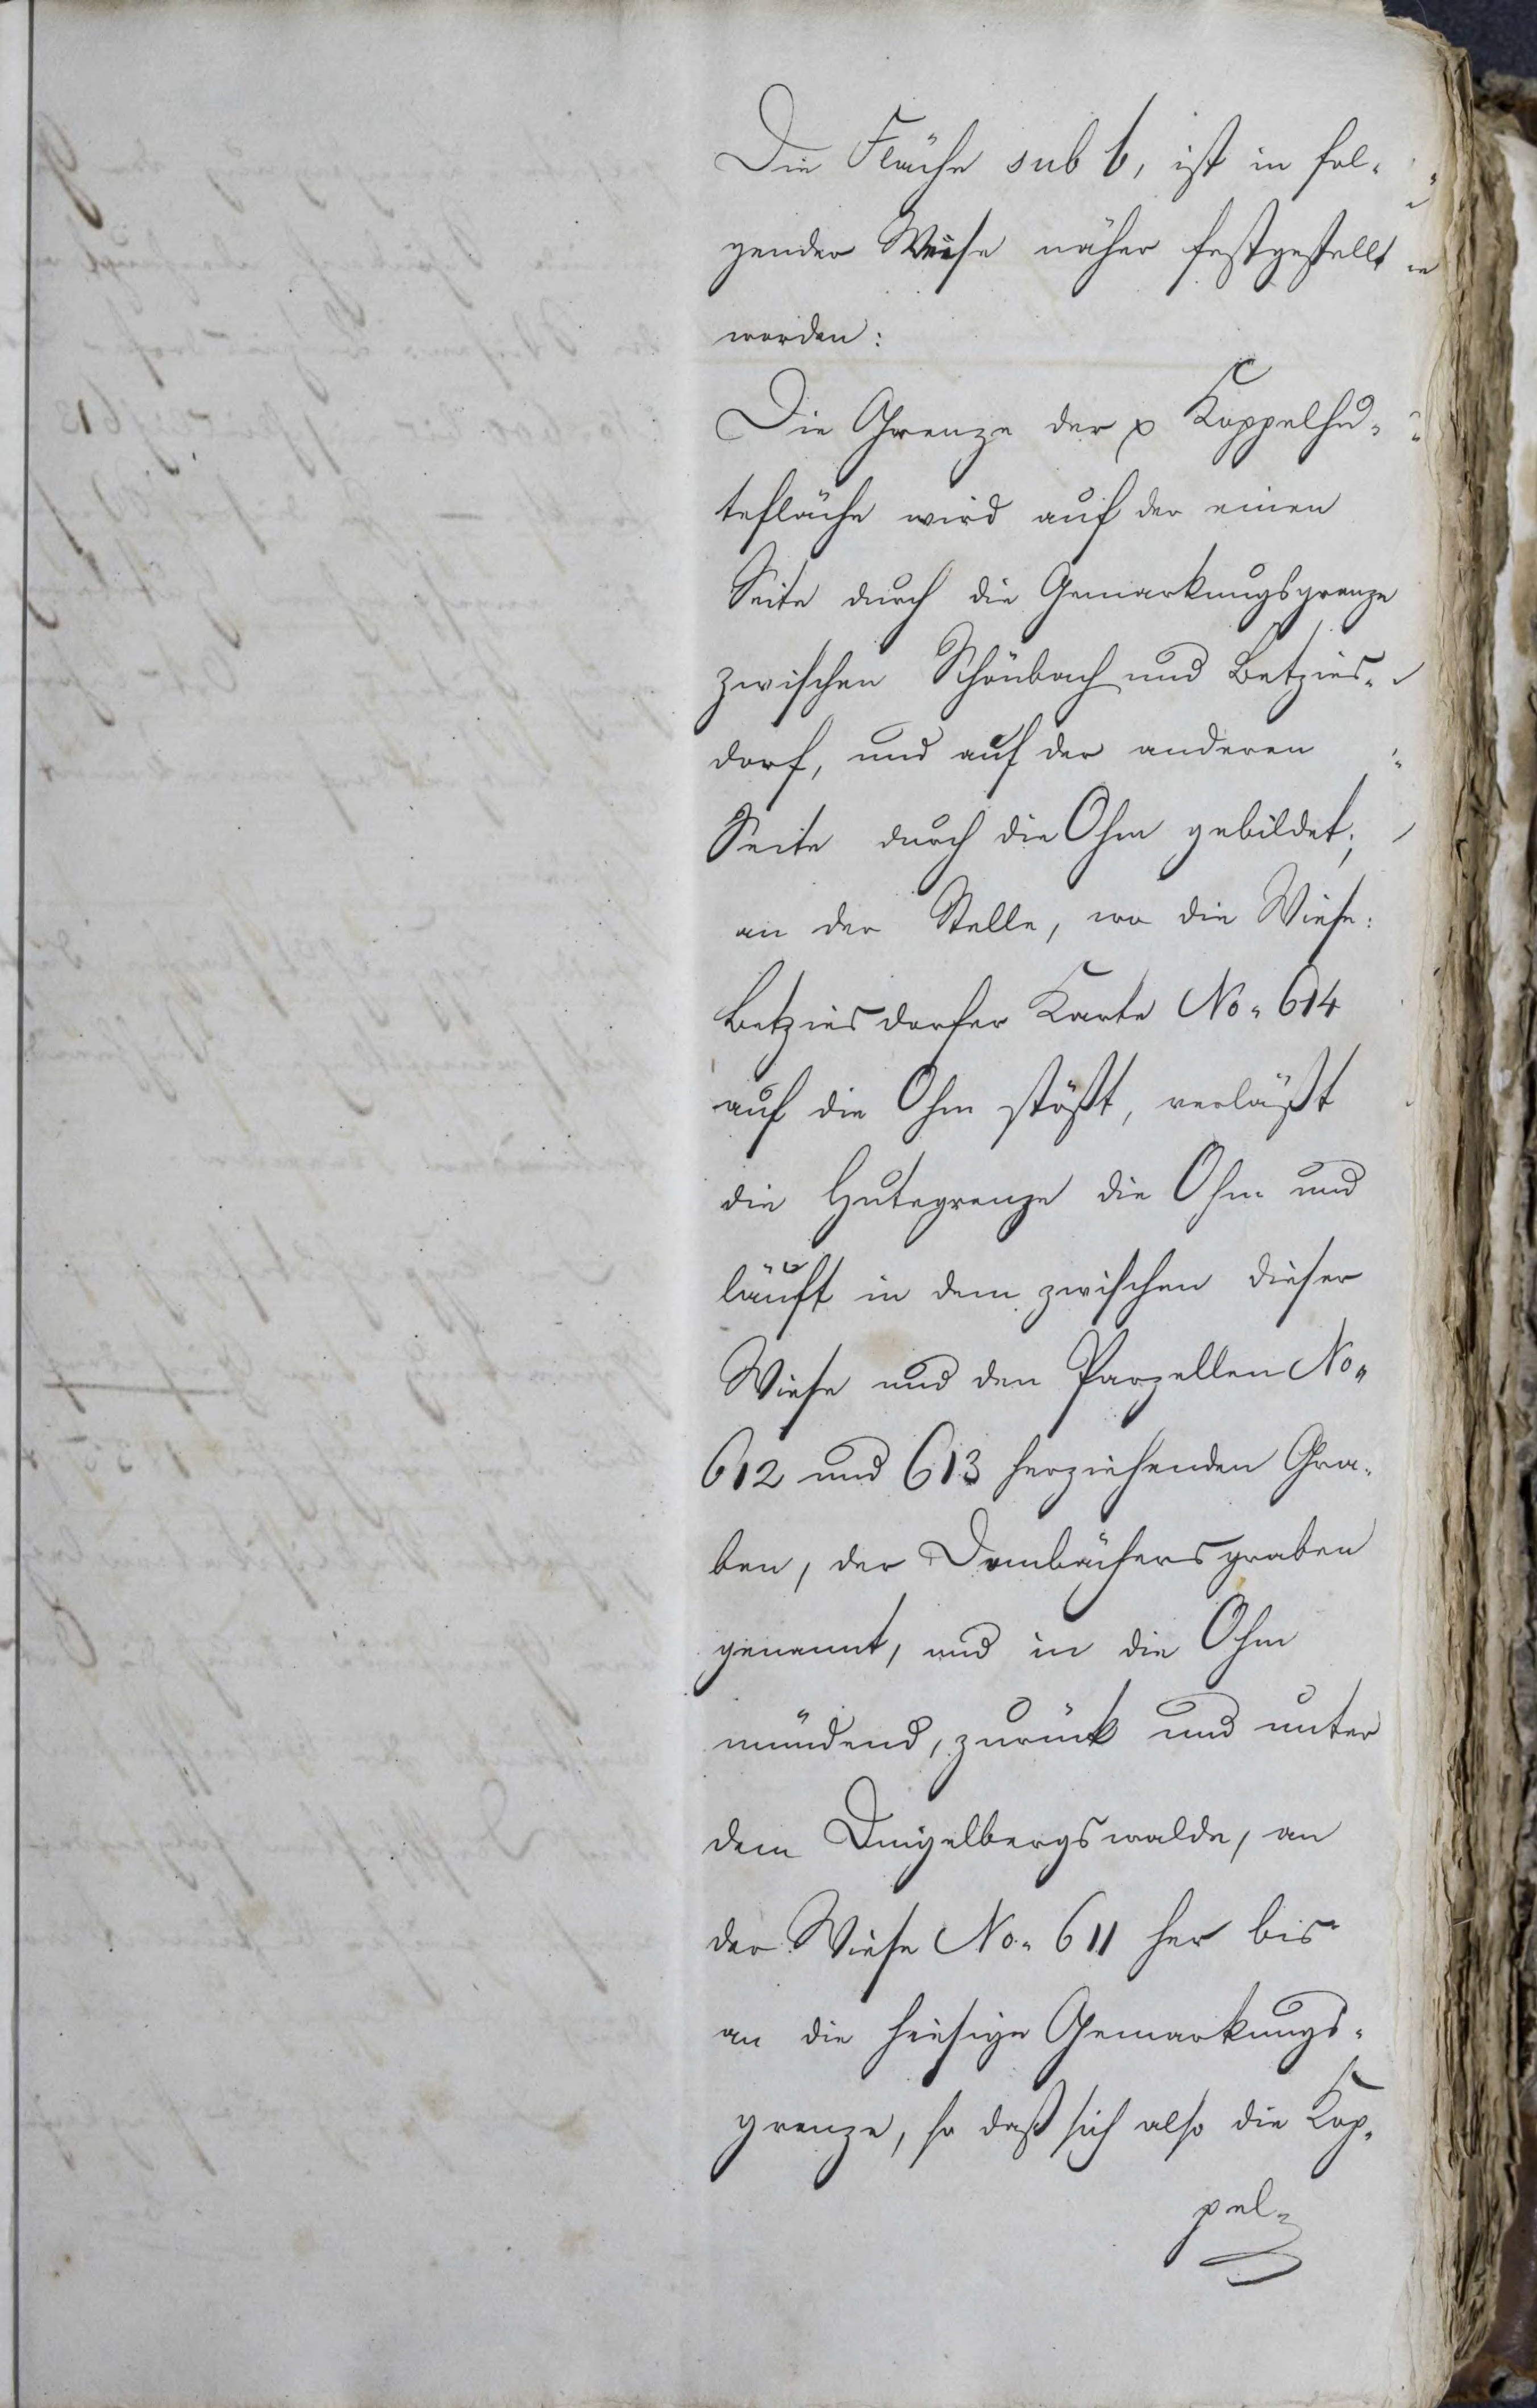 Die Fläche sub b, ist in fol-
gender Weise näher festgestellt
worden:
Die Grenze der p Koppelhu-
tefläche wird auf der einen
Seite durch die Gemarkungsgrenze
zwischen Schönbach und Betzies-
dorf, und auf der anderen
Seite durch die Ohm gebildet;
an der Stelle, wo die Wiese:
Betziesdorfer Karte No. 614
auf die Ohm stößt, verläßt
die Hutegrenze die Ohm und
läuft in dem zwischen dieser
Wiese und den Parzellen No.
612 und 613 herziehenden Gra-
ben, der Dombächersgraben
genannt, und in die Ohm
mündend, zurück und unter
dem Dingelbergswalde, an
der Wiese No. 611 her bis
an die hiesige Gemarkungs-
grenze, so daß sich also die Kop-
pel-